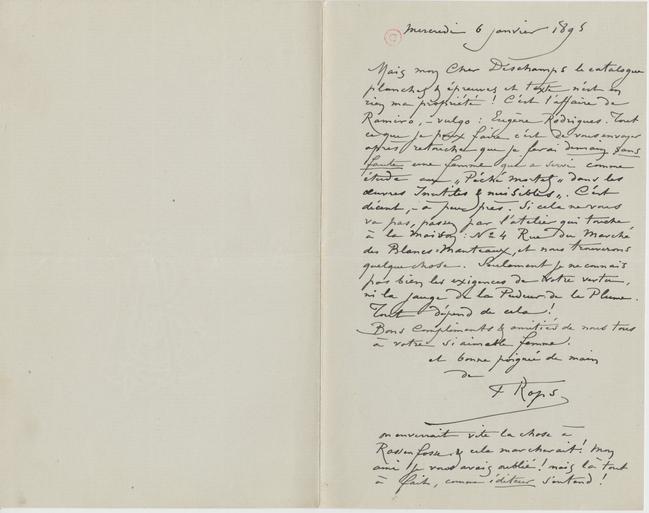 Mercredi 6 janvier 1895
Mais mon Cher Deschamps le catalogue
planches & épreuves et texte n'est en
rien ma propriété ! C'est l'affaire de
Ramiro, – vulgo : Eugène Rodrigues. Tout
ce que je peux faire c'est de vous envoyer
après retouche que je ferai demain sans
faute une femme qui a servi comme
étude au „Péché mortel" dans les
œuvres Inutiles & nuisibles". C'est
décent, – à peu près. Si cela ne vous
va pas, passez par l'atelier qui touche
à la maison : N° 4 Rue du Marché
des Blancs-Manteaux, et nous trouverons
quelque chose. Seulement je ne connais
pas bien les exigences de votre vertu,
ni la jauge de la Pudeur de la Plume.
Tout dépend de cela !
Bons compliments & amitiés de nous tous
à votre si aimable femme.
et bonne poignée de main
de
F Rops
on enverrait vite la chose à
Rassenfosse & cela marcherait ! Mon
ami je vous avais oublié ! mais là tout
à fait, comme éditeur s'entend !